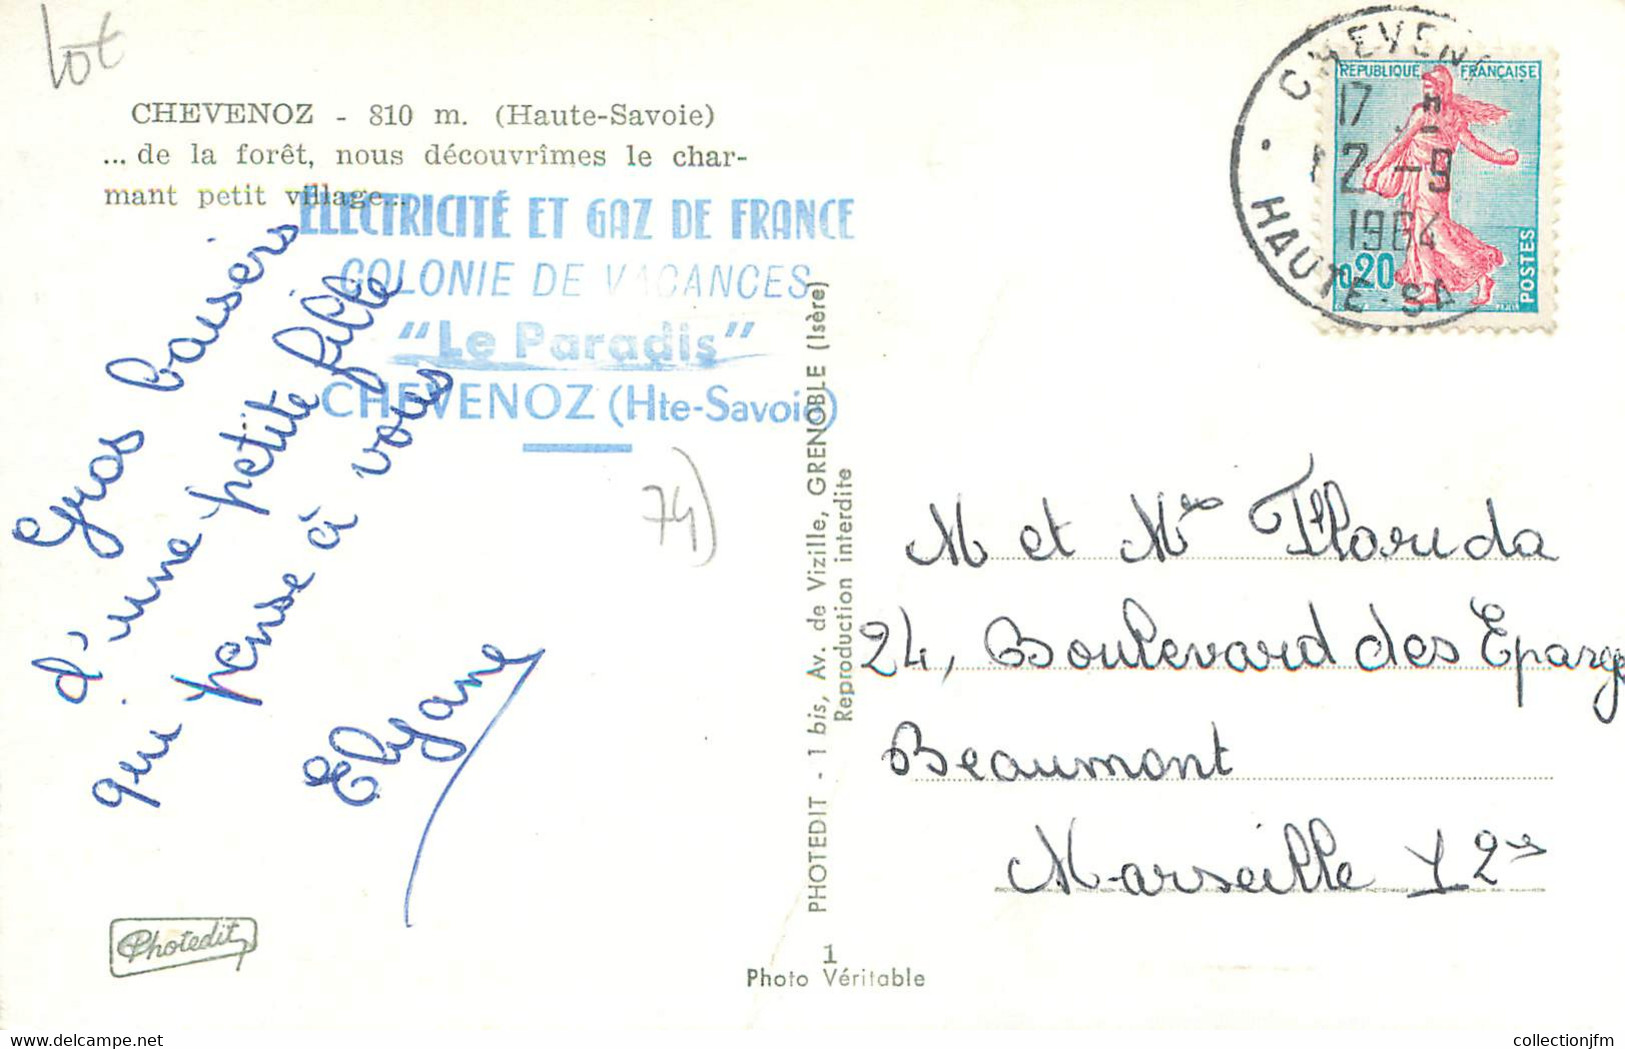 lot
CHEVENOZ - 810 m. (Haute-Savoie)
... de la forêt, nous découvrîmes le char-
mant petit village...
ÉLECTRICITÉ ET GAZ DE FRANCE
COLONIE DE VACANCES
"Le Paradis"
CHEVENOZ (Hte-Savoie)
Gros baisers
d'une petite fille
qui pense à vous
Elyane
74)
Photedit
PHOTEDIT - 1 bis, Av. de Vizille, GRENOBLE (Isère)
Reproduction interdite
1
Photo Véritable
CHEVEN
17 H
12 -9
1964
HAUTE-SA
REPUBLIQUE FRANÇAISE
0,20
POSTES
M et Mme Florida
24, Boulevard des Eparge
Beaumont
Marseille 12es
collectionjfm